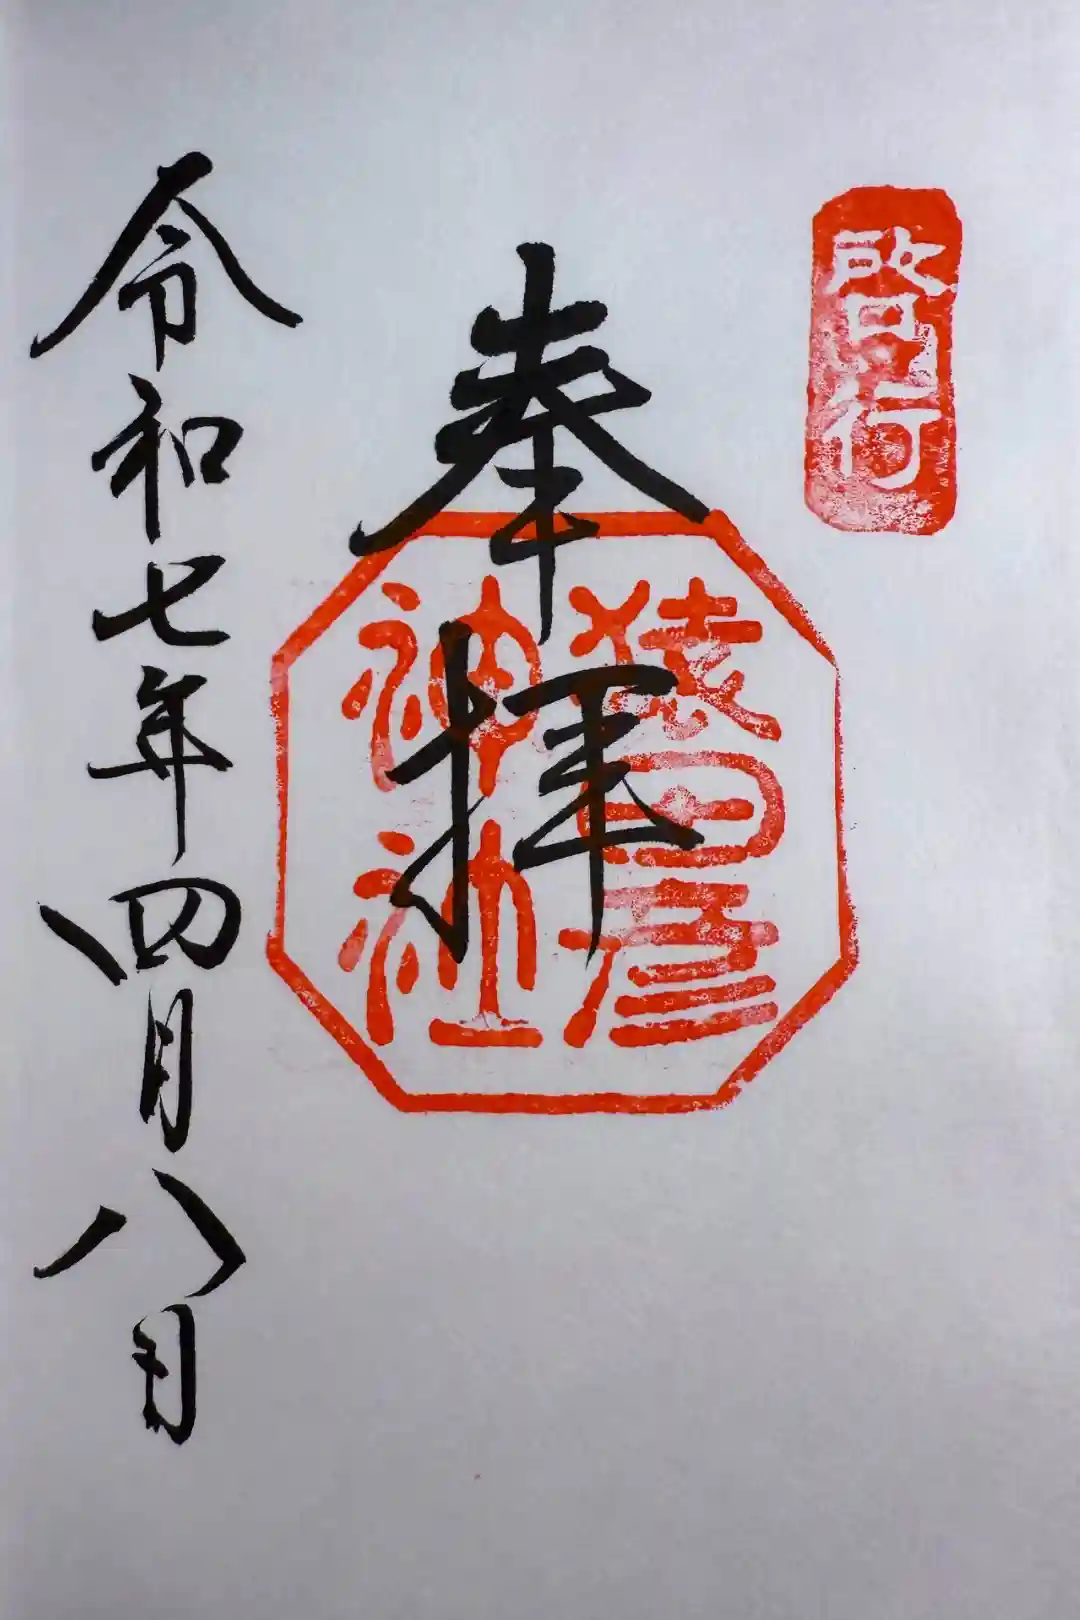 啓行
奉拝
猿田彦
神社
令和七年四月八日